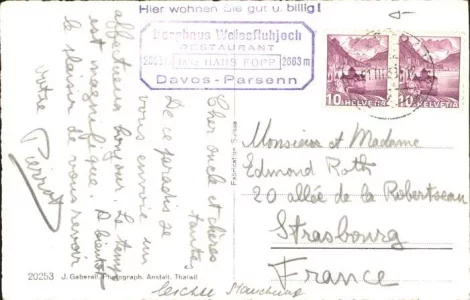 Hier wohnen Sie gut u. billig!
Berghaus Weissfluhjoch
RESTAURANT
2663 m Jng. HANS FOPP 2663 m
Davos-Parsenn
10 HELVETIA
10 HELVETIA
Cher oncle et chères
tantes
De ce paradis je
vous envoie un
affectueux bonjour. Le temps
est magnifique. A bientôt
le plaisir de vous revoir
votre
Pierrot
Fabrication Suisse
Monsieur et Madame
Edmond Roth
20 allée de la Robertsau
Strasbourg
France
20253 J. Gaberell, Photograph. Anstalt, Thalwil